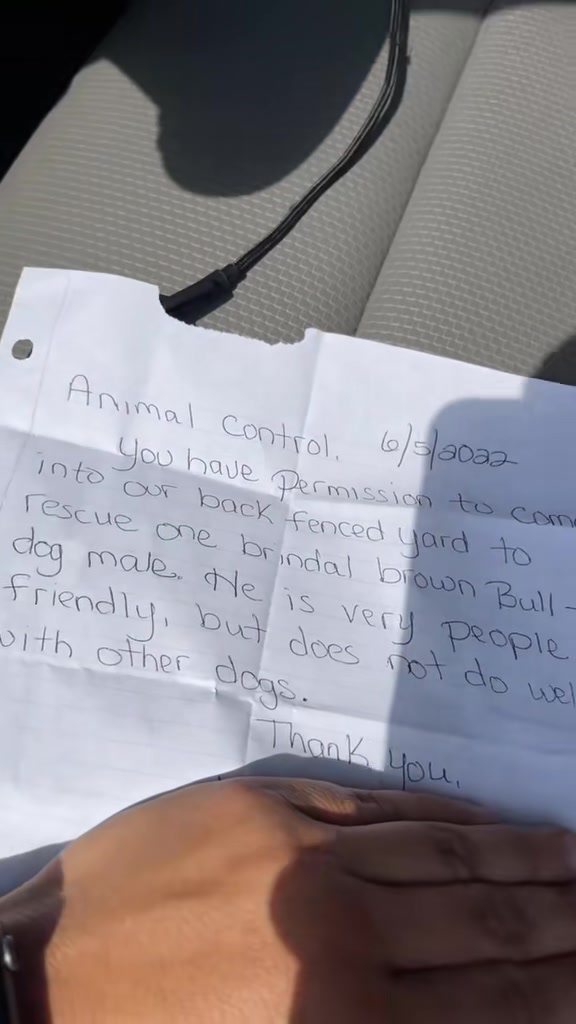 Animal Control. 6/5/2022
You have Permission to come
into our back fenced yard to
rescue one brindal brown Bull-
dog male. He is very people
friendly, but does not do wel
with other dogs.
Thank you.